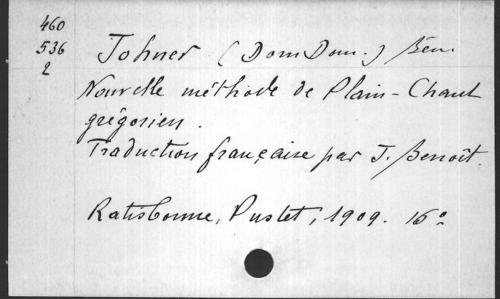 460
536
2
Johner (Dom Dom.) Bén.
Nouvelle méthode de Plain-Chant
grégorien.
Traduction française par J. Benoît.
Ratisbonne, Pustet, 1909. 16°